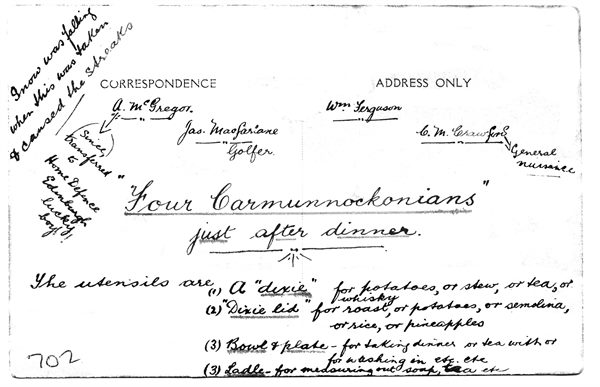 Snow was falling
when this was taken
& caused the streaks
CORRESPONDENCE
ADDRESS ONLY
A. McGregor.
Wm Ferguson
(Since
transferred
to
Home Defence
Edinburgh
lucky
boy!)
Jas. Macfarlane
Golfer.
C. M. Crawford
General
nuisance
"Four Carmunnockonians"
just after dinner.
The utensils are (1) A "dixie" for potatoes, or stew, or tea, or
whisky
(2) "Dixie lid" for roast, or potatoes, or semolina,
or rice, or pineapples
(3) Bowl & plate - for taking dinner or tea with or
for washing in etc. etc
(3) Ladle - for measuring out soup, tea etc
702